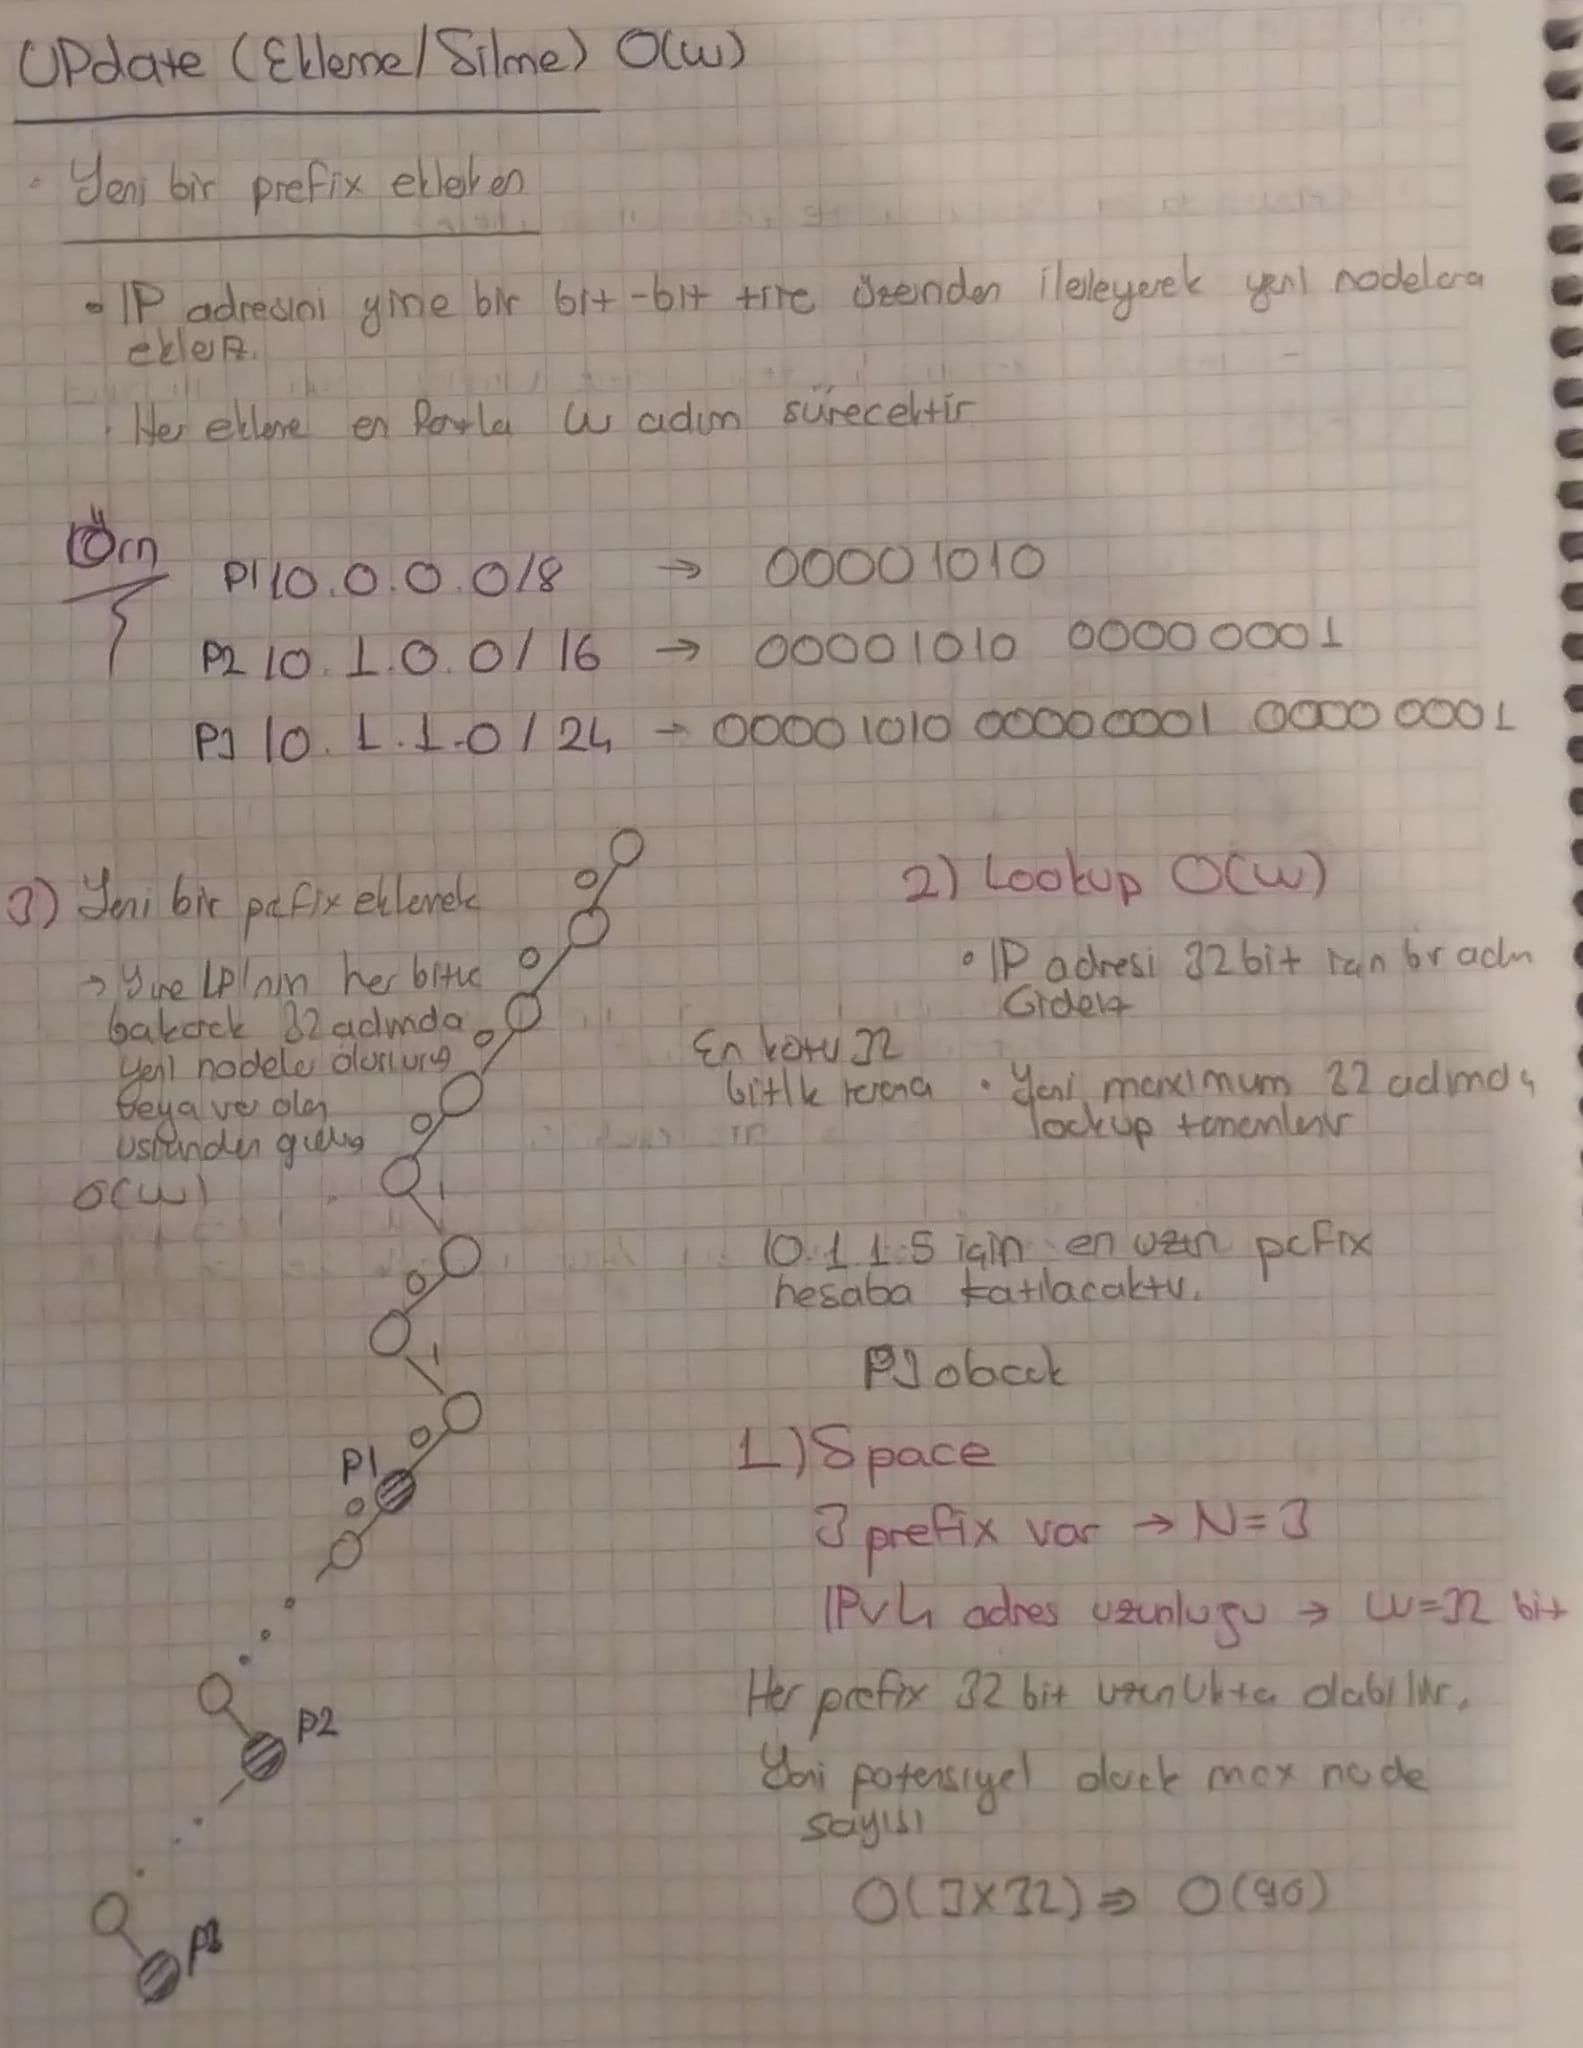 UPdate (Ekleme/Silme) O(W)
Yeni bir prefix eklerken
IP adresini yine bir bit-bit trie üzerinden ilerleyerek yeni nodelera
ekleriz.
Her ekleme en fazla W adım sürecektir
Örn
P1 10.0.0.0/8 → 00001010
P2 10.1.0.0/16 → 00001010 00000001
P3 10.1.1.0/24 → 00001010 00000001 00000001
3) Yeni bir prefix eklemek
→ Yine IP'nin her bitine
bakarak 32 adımda
yeni nodeler oluşturup
veya var olan
üstünden
O(W)
2) Lookup O(W)
IP adresi 32 bit için bir adım
Gideriz
En kötü 32
bitlik
Yani maximum 32 adımda
lookup tamamlanır
10.1.1.5 için en uzun prefix
hesaba katılacaktır.
P3 olacak
1) Space
3 prefix var → N=3
IPv4 adres uzunluğu → W=32 bit
Her prefix 32 bit uzunlukta olabilir.
Yani potansiyel olarak max node
sayısı
O(3x32) ⇒ O(96)
0
0
0
0
1
0
1
0
P1
0
P2
P3